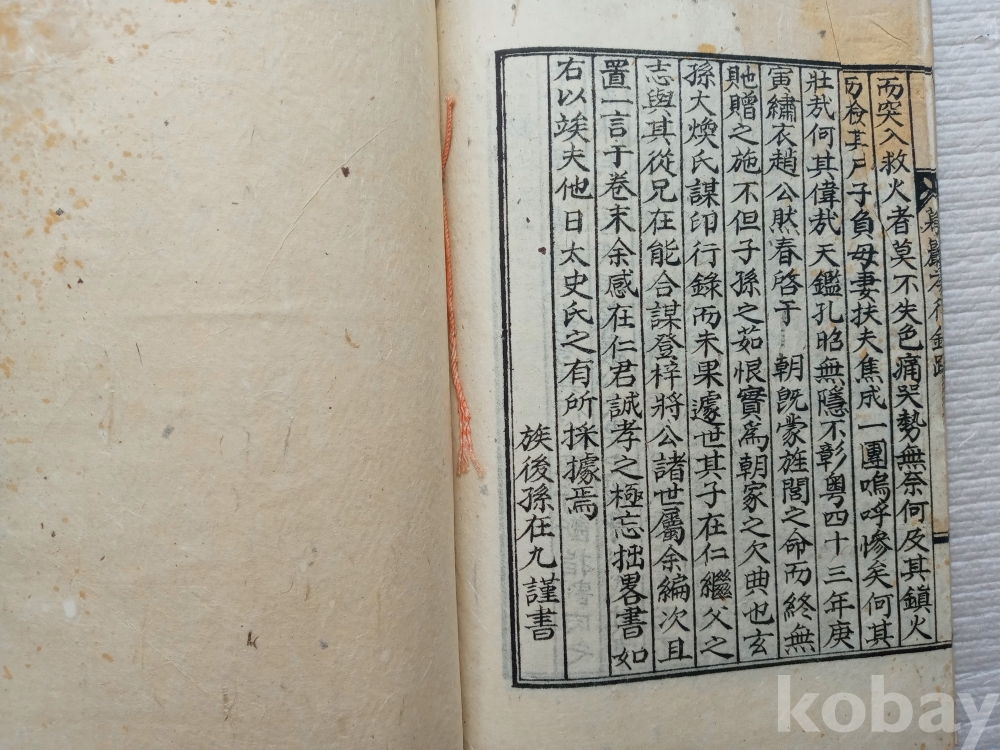 而突入救火者莫不失色痛哭勢無奈何及其鎮火
而檢其尸子負母妻扶夫焦成一團嗚呼慘矣何其
壯㢤何其偉㢤天鑑孔昭無隱不彰粤四十三年庚
寅繡衣趙公然春啓于 朝旣蒙旌閭之命而終無
貤贈之施不但子孫之茹恨實爲朝家之欠典也玄
孫大煥氏謀印行錄而未果遽世其子在仁繼父之
志與其從兄在能合謀登梓將公諸世屬余編次且
置一言于卷末余感在仁君誠孝之極忘拙畧書如
右以竢夫他日太史氏之有所採據焉
族後孫在九謹書
kobay